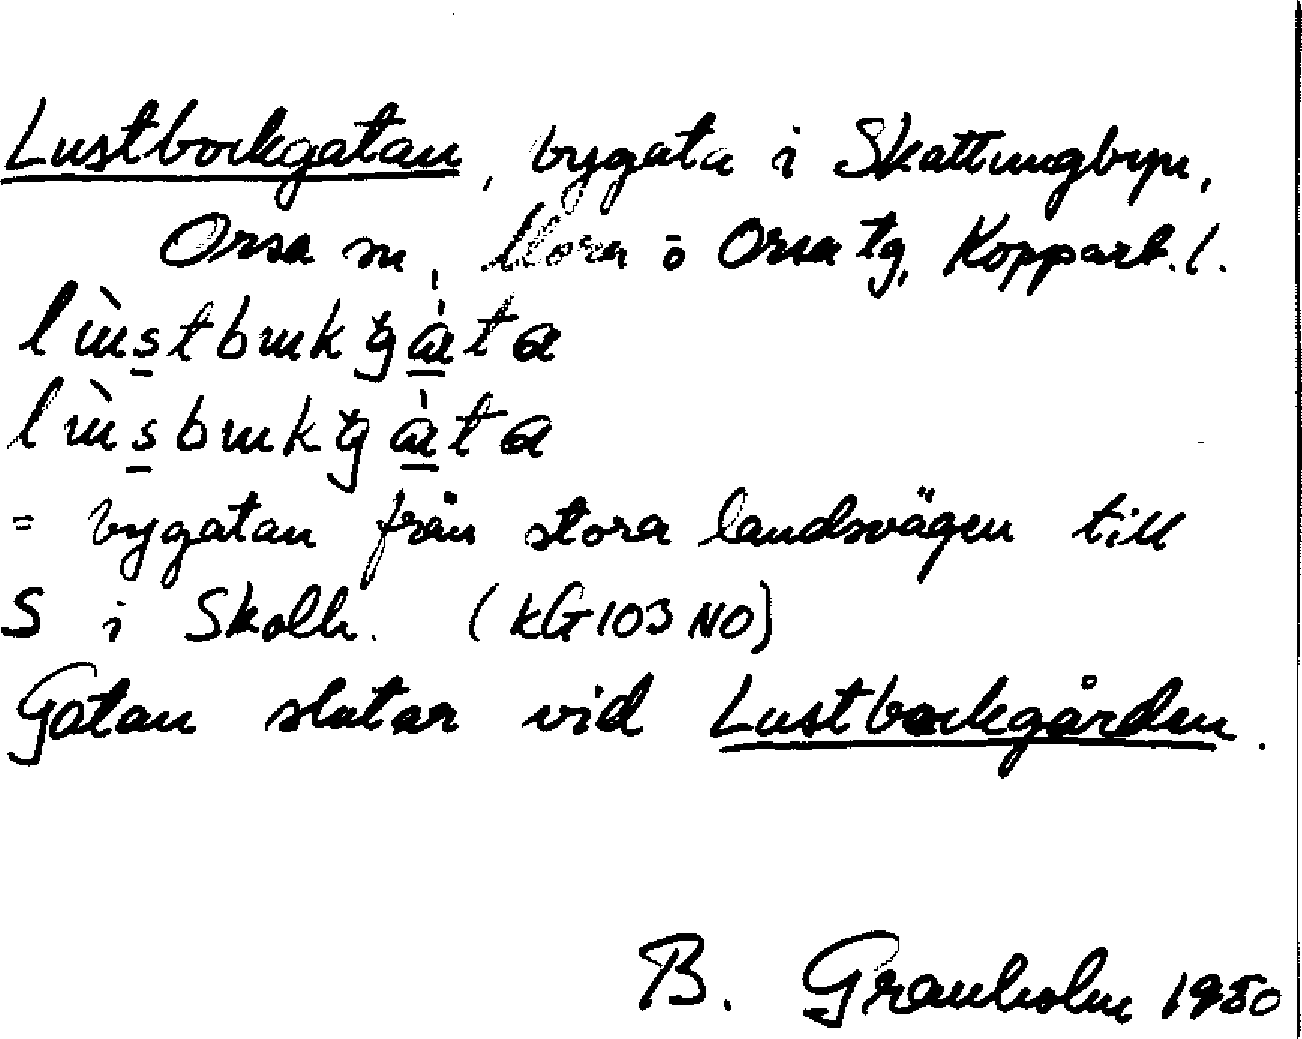 Lustbockgatan, bygata i Skattungbyn,
Orsa sn, Mora o Orsa tg, Kopparb. l.
lùstbukgàta
lùsbukgàta
= bygatan från stora landsvägen till
S i Skolh. (kG 103 NO)
Gatan slutar vid Lustbockgården.
B. Granholm 1950